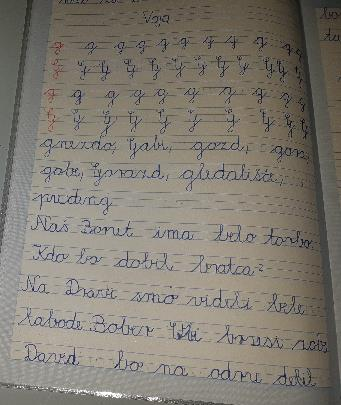 Vaja
g g g g g g g g g g
G G G G G G G G G G
g g g g g g g g g
G G G G G G G G G
gnezdo, Gabi, gozd, gora,
gobe, Gorazd, gledališče,
puding
Naš Boret ima belo torbo.
Kdo bo dobil bratca?
Na Dravi smo videli bele
labode. Bober brusi zobe
David bo na odru delil